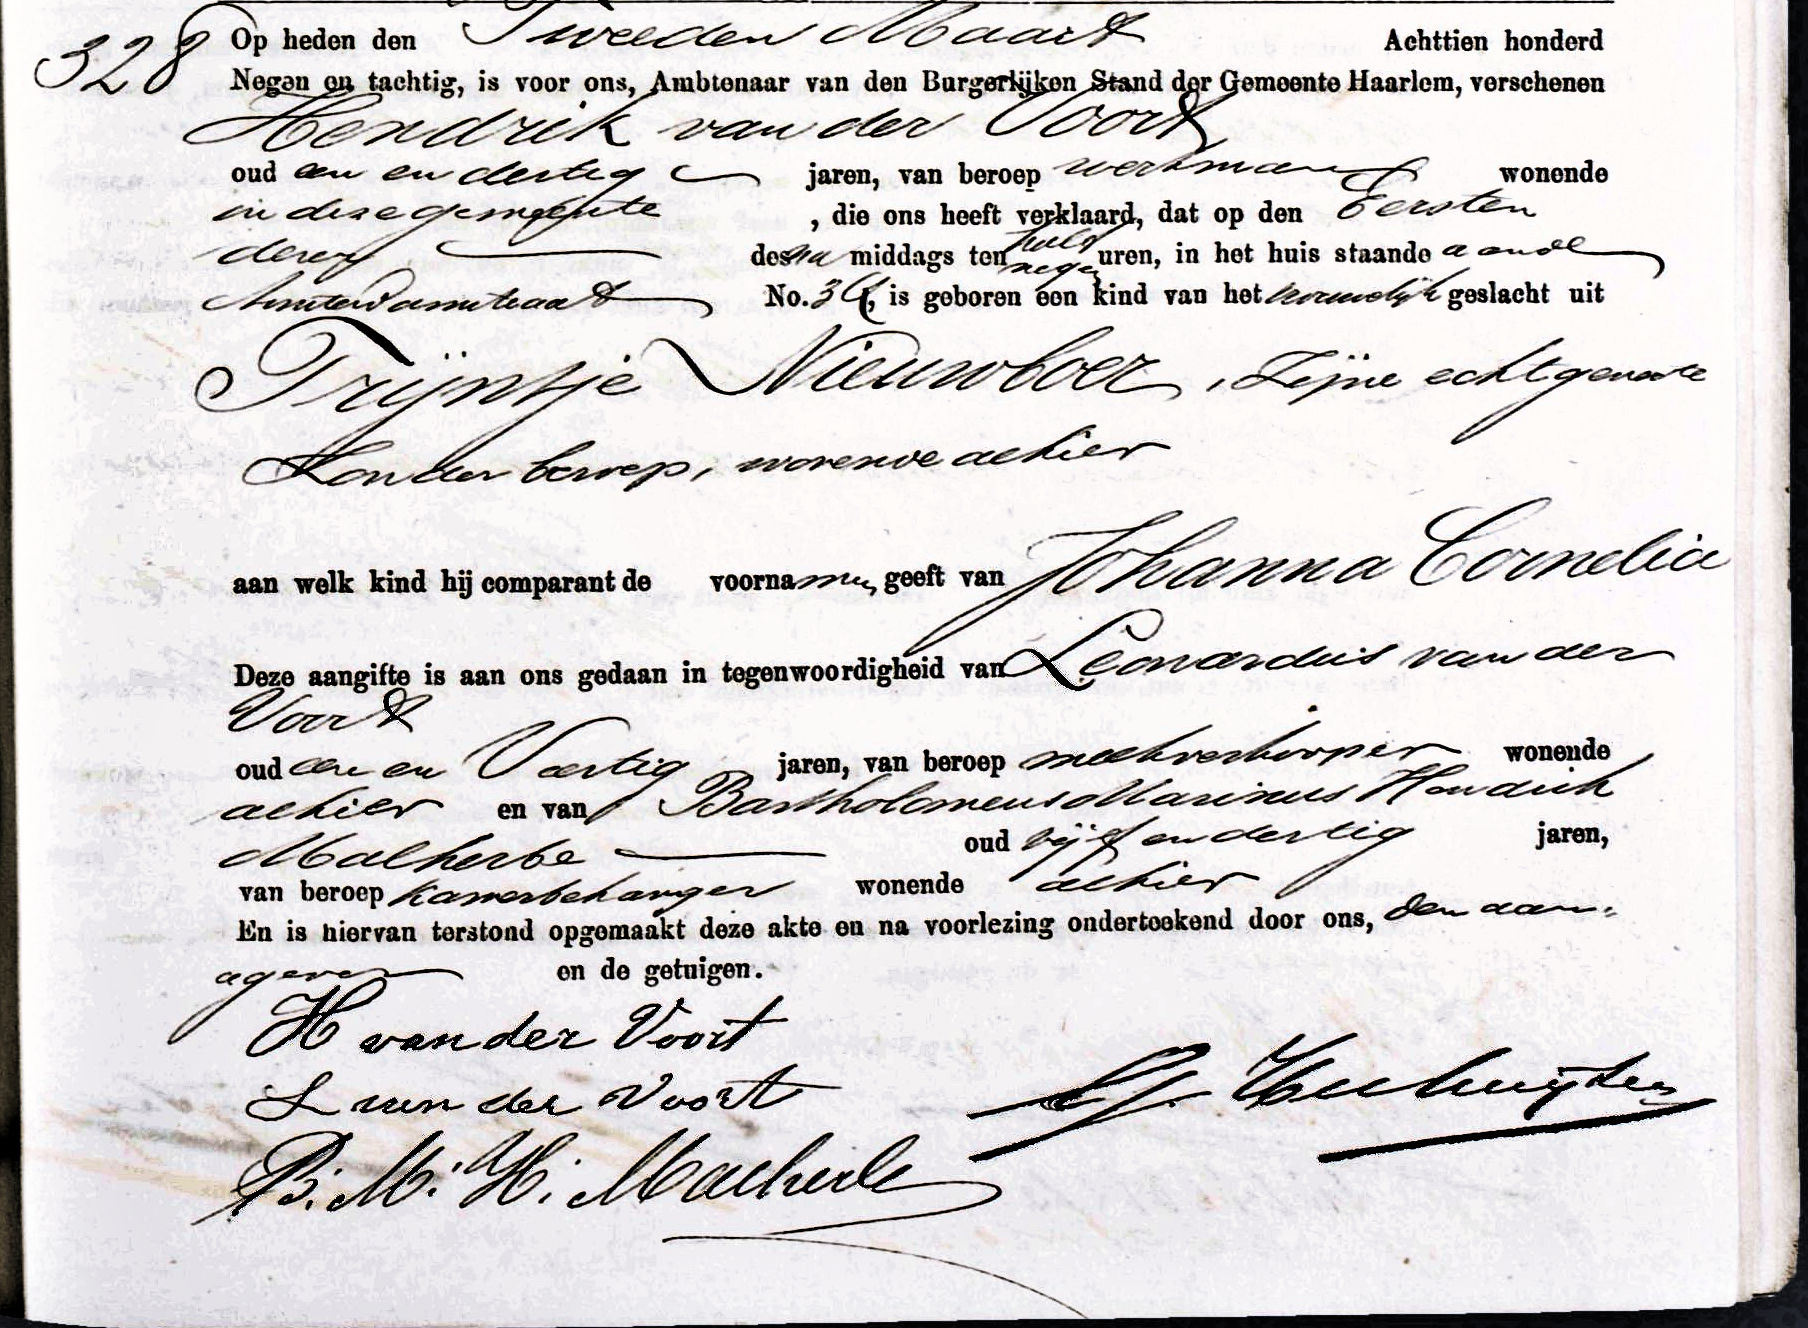 328 Op heden den Tweeden Maart Achttien honderd
Negen en tachtig, is voor ons, Ambtenaar van den Burgerlijken Stand der Gemeente Haarlem, verschenen
Hendrik van der Voort
oud een en dertig jaren, van beroep werkman wonende
in deze gemeente, die ons heeft verklaard, dat op den Eersten
dezer des na middags ten half negen uren, in het huis staande aan de
Amsterdamstraat No. 3, is geboren een kind van het vrouwelijk geslacht uit
Trijntje Nieuwboer, Zijne echtgenoote
Zonder beroep, wonende alhier
aan welk kind hij comparant de voornamen geeft van Johanna Cornelia
Deze aangifte is aan ons gedaan in tegenwoordigheid van Leonardus van der
Voort
oud een en Veertig jaren, van beroep melkverkooper wonende
alhier en van Bartholomeus Marinus Hendrik
Malherbe oud vijf en dertig jaren,
van beroep kamerbehanger wonende alhier
En is hiervan terstond opgemaakt deze akte en na voorlezing onderteekend door ons, den aan-
gever en de getuigen.
H van der Voort
L van der Voort
B. M. H. Malherbe